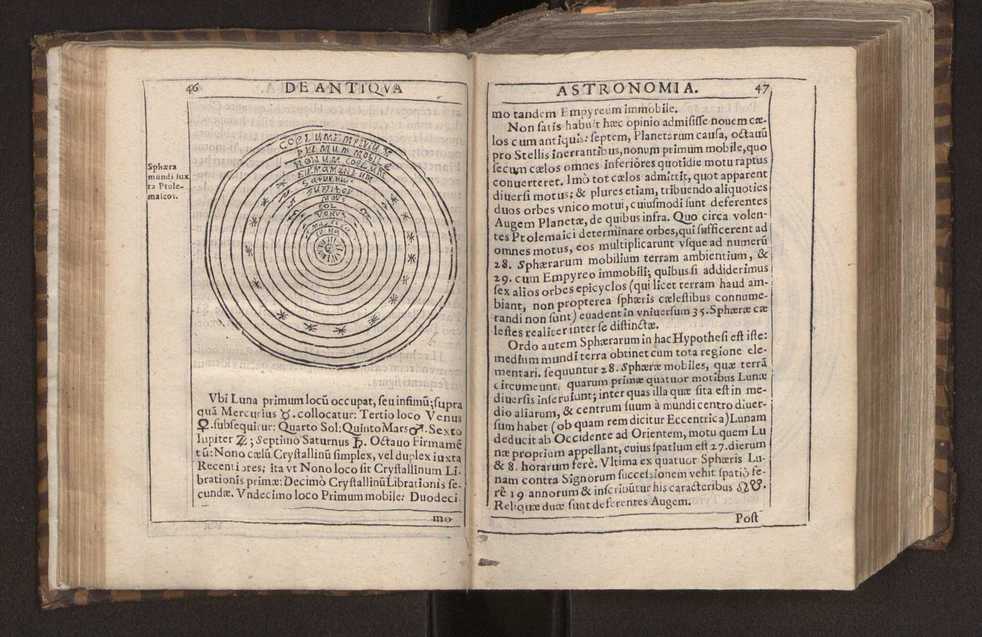 46 DE ANTIQVA
Sphæra
mundi iux
ta Ptole-
maicos.
COELUM EMPIVIU
PRIMUM MOBILE
NONUM COELUM
FIRMAMENTUM
SATURNUS
IUPITER
MARS
SOL
VENUS
Vbi Luna primum locũ occupat, seu infimũ; supra
quã Mercurius ☿. collocatur: Tertio loco Venus
♀. subsequitur: Quarto Sol: Quinto Mars ♂. Sexto
Iupiter ♃; Septimo Saturnus ♄. Octauo Firmamẽ
tũ: Nono cælũ Crystallinũ simplex, vel duplex iuxta
Recentiores; ita vt Nono loco sit Crystallinum Li-
brationis primæ: Decimò Crystallinũ Librationis se-
cundæ. Vndecimo loco Primum mobile: Duodeci-
mo
ASTRONOMIA. 47
mo tandem Empyreum immobile.
Non satis habuit hæc opinio admisisse nouem cæ-
los cum antiquis: septem, Planetarum causa, octauũ
pro Stellis inerrantibus, nonum primum mobile, quo
secum cælos omnes inferiores quotidie motu raptus
conuerteret. Imò tot cælos admittit, quot apparent
diuersi motus; & plures etiam, tribuendo aliquoties
duos orbes vnico motui, cuiusmodi sunt deferentes
Augem Planetæ, de quibus infra. Quo circa volen-
tes Ptolemaici determinare orbes, qui sufficerent ad
omnes motus, eos multiplicarunt vsque ad numerũ
28. Sphærarum mobilium terram ambientium, &
29. cum Empyreo immobili; quibus si addiderimus
sex alios orbes epicyclos (qui licet terram haud am-
biant, non propterea sphæris cælestibus connume-
randi non sunt) euadent in vniuersum 35. Sphæræ cæ
lestes realiter inter se distinctæ.
Ordo autem Sphærarum in hac Hypothesi est iste:
medium mundi terra obtinet cum tota regione ele-
mentari. sequuntur 28. Sphæræ mobiles, quæ terrã
circumeunt. quarum primæ quatuor motibus Lunæ
diuersis inseruiunt; inter quas illa quæ sita est in me-
dio aliarum, & centrum suum à mundi centro diuer-
sum habet (ob quam rem dicitur Eccentrica) Lunam
deducit ab Occidente ad Orientem, motu quem Lu
næ proprium appellant, cuius spatium est 27. dierum
& 8. horarum ferè. Vltima ex quatuor Sphæris Lu-
nam contra Signorum successionem vehit spatiò fe-
rè 19 annorum & inscribũtur his caracteribus ☊☋.
Reliquæ duæ sunt deferentes Augem.
Post